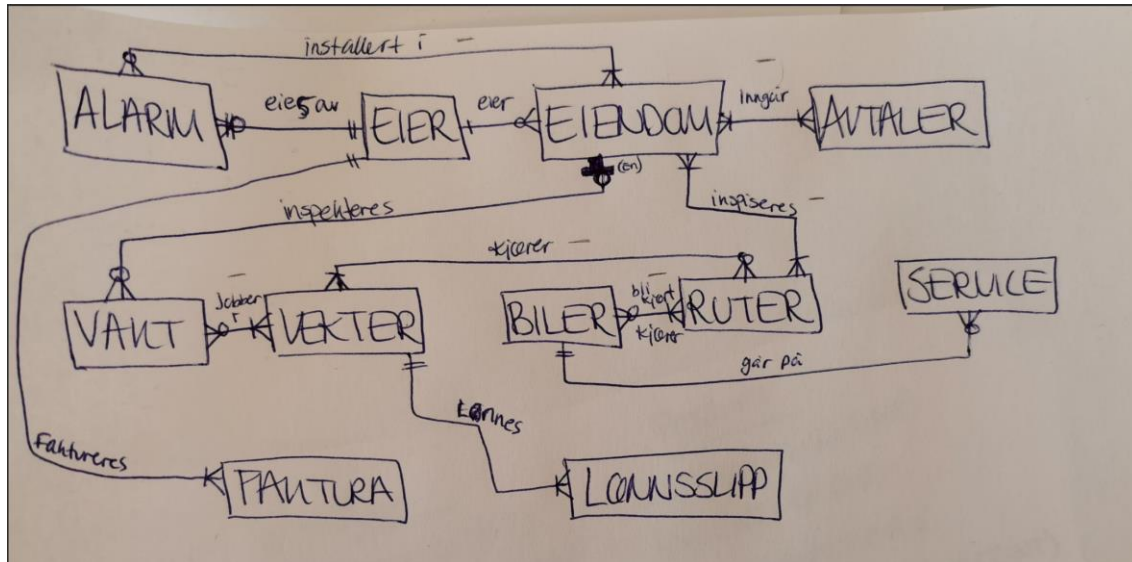 installert i –
ALARM
eies av
EIER
eier
EIENDOM
inngår –
AVTALER
(en)
inspekteres
inspiseres –
kjører –
VAKT
Jobber i –
VEKTER
BILER
bli kjørt –
kjører
RUTER
SERVICE
går på
Lønnes
Faktureres
FAKTURA
LØNNSSLIPP